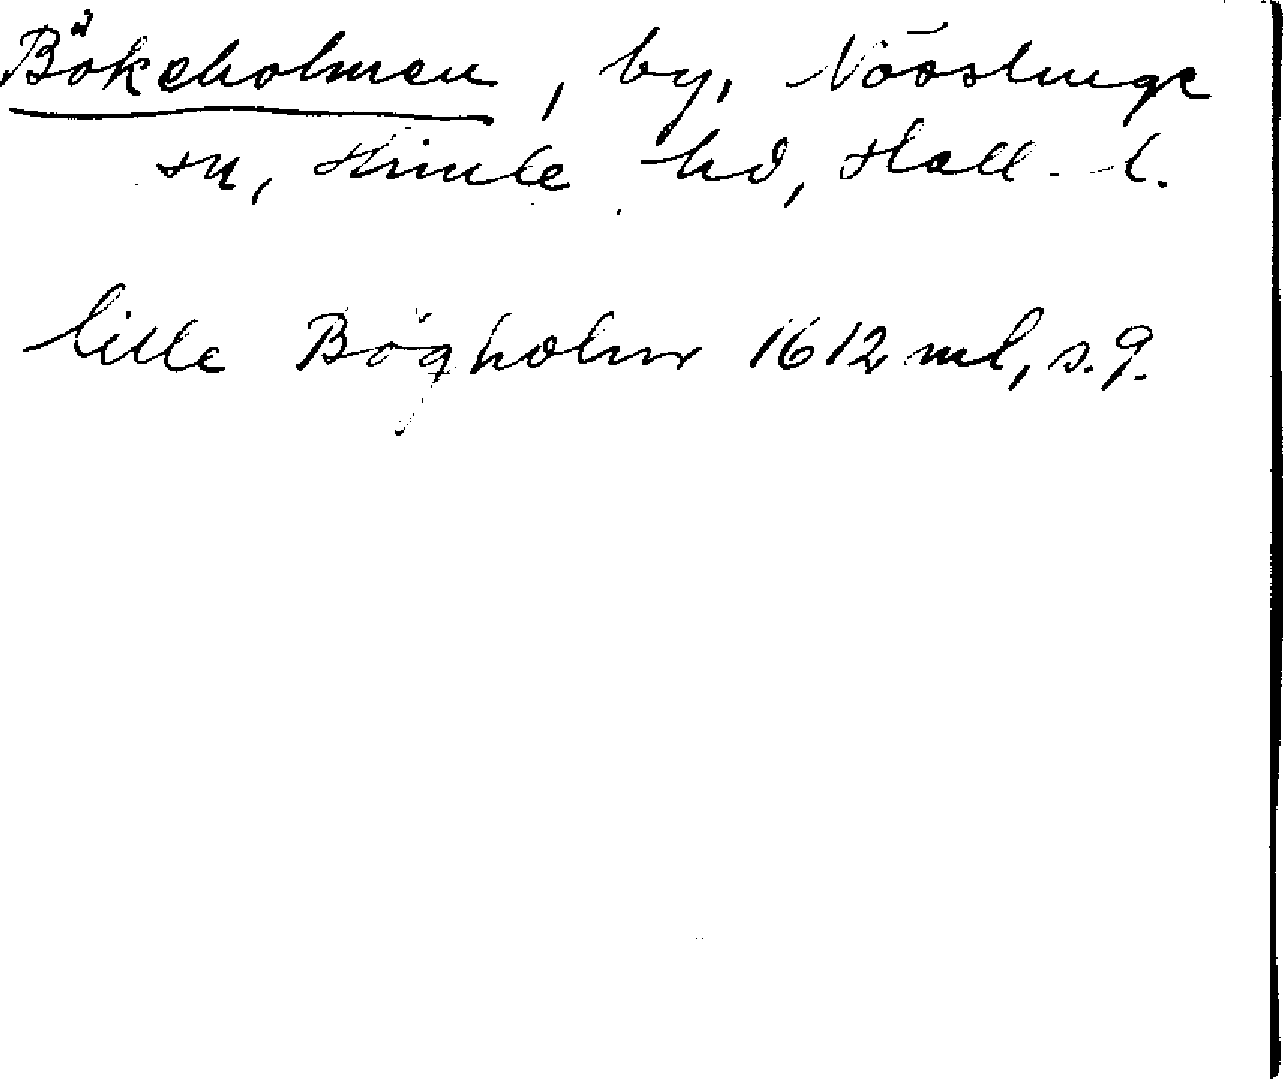 Bökeholmen, by, Nösslinge
sn, Himle hd, Hall. l.
lille Bögholm 1612 ml, s. 9.